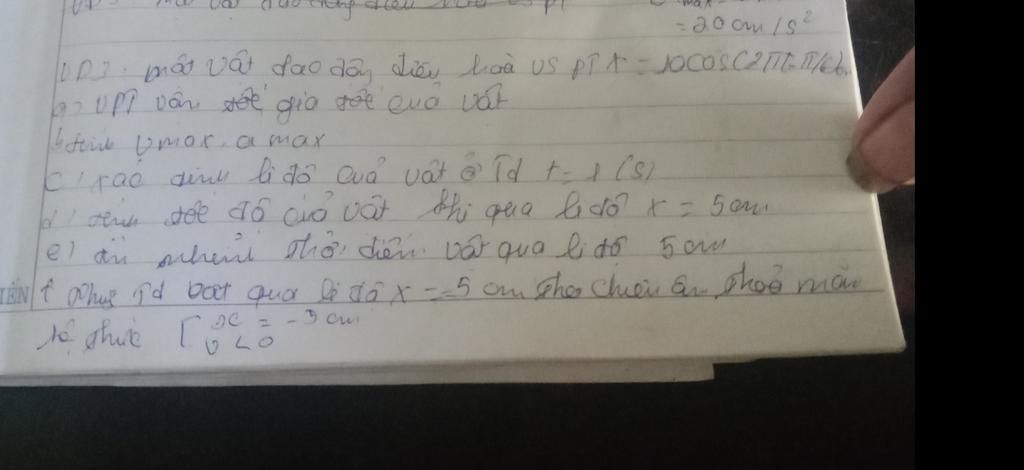 = 20 cm/s²
VD3: một vật dao động điều hoà vs PT x = 10cos(2πt
a) VPT vận tốc gia tốc quả vật
b) tính vmax, a max
c) xác định li độ quả vật ở Tđ t = 1 (s)
d) tính tốc độ của vật khi qua li độ x = 5 cm
e) thời điểm vật qua li độ 5 cm
f Tđ vật qua li độ x = -5 cm theo chiều âm, thoả mãn
hệ thức [ x = -5 cm
v < 0